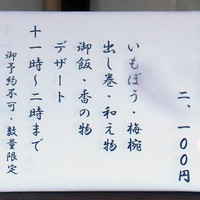 二、一〇〇円
いもぼう・梅椀
出し巻・和え物
御飯・香の物
デザート
十一時〜二時まで
御予約不可・数量限定